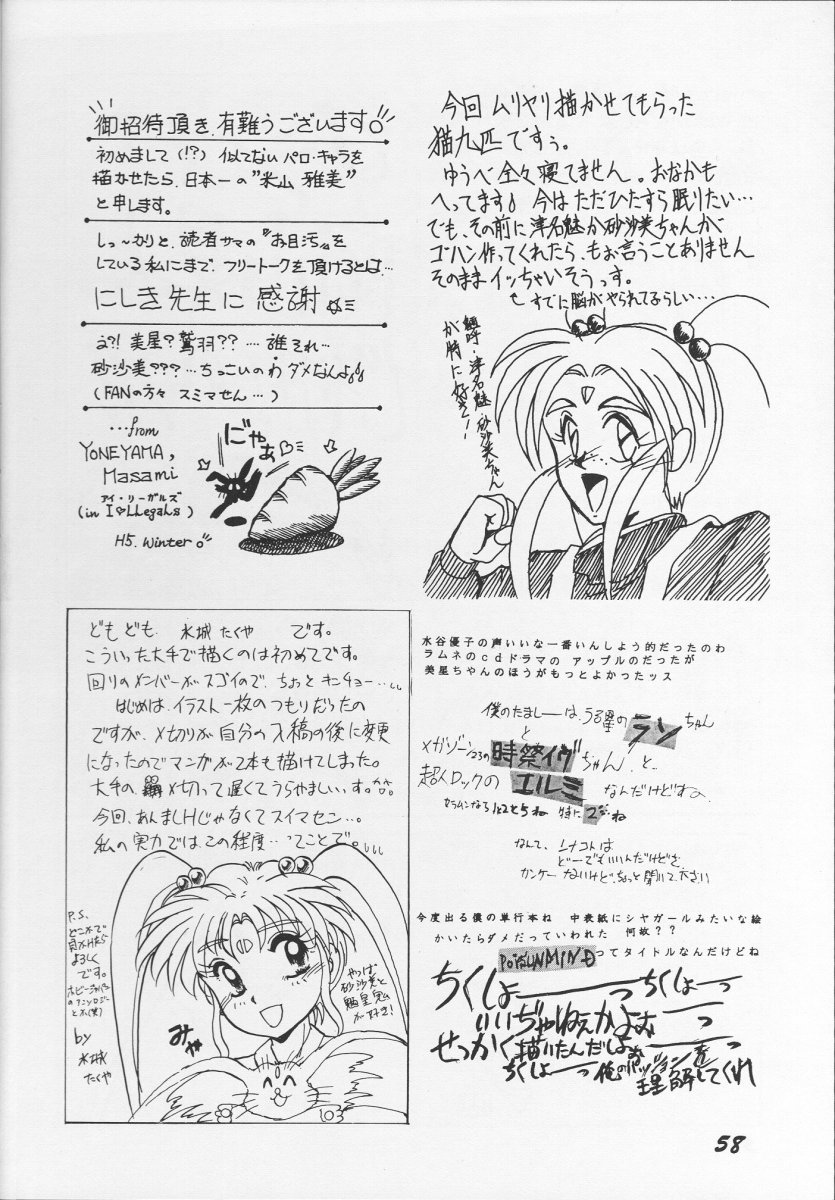 今回 ムリヤリ描かせてもらった
猫九匹ですぅ。
ゆうべ全々寝てません。おなかも
へってます♪ 今はただひたすら眠りたい…
でも、その前に津名魅か砂沙美ちゃんが
ゴハン作ってくれたら、もお言うことありません
そのままイッちゃいそうっす。
すでに脳がやられてるらしい…
魎呼・津名魅 砂沙美ちゃん
が特に好き!
御招待頂き、有難うございます
初めまして(!?) 似てない パロ・キャラを
描かせたら、日本一の"米山 雅美"
と申します。
しっ〜かりと、読者サマの『お目汚』を
している私にまで、フリートークを頂けるとは…
にしき先生に 感謝
え?! 美星? 鷲羽?? …. 誰それ…
砂沙美???…ちっこいのわ ダメなんよ♪♪
(FANの方々 スミマせん…)
…from
YONEYAMA,
Masami
アイ・リーガルズ
(in I♡LLegaLs)
H5. Winter。
にゃあ
どもども、水城 たくや です。
こういった大手で描くのは初めてです。
回りのメンバーがスゴイので、ちょっとキンチョー…
はじめは、イラスト一枚のつもりだったの
ですが、〆切りが自分の入稿の後に変更
になったのでマンガが2本も描けてしまった。
大手の 〆切って遅くてうらやましいっす。
今回、あんましHじゃなくてスイマセン…。
私の実力では、この程度…ってことで。
P.S.
どこかで
見かけたら
よろしく
です。
ホビージャパン
のアンソロジー
とか(笑)
by
水城
たくや
みゃ
やっぱ
砂沙美と
魎皇鬼
が好き!
水谷優子の声いいな一番いんしよう的だったのわ
ラムネのcdドラマの アップルのだったが
美星ちゃんのほうがもっとよかったッス
僕のたましーは、うる星のランちゃん
と
メガゾーン23の時祭イヴちゃん、と
超人ロックの エルミ なんだけどすよ、
なんて、ンナコトは
どーでもいいんだけどさ
カンケーないけど、ちょっと聞いて下さい
今度出る僕の単行本ね 中表紙にシヤガールみたいな絵
かいたらダメだっていわれた 何故??
POiSUNMINDってタイトルなんだけどね
ちくしょーーっちくしょーっ
いいぢゃねえかよぉーっ
せっかく描いたんだしょぉーっ
ちくしょーっ俺のパッションを
理解してくれ
58